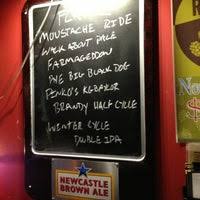 MOUSTACHE RIDE
WALK ABOUT PALE
FARMAGEDDON
ONE BIG BLACK DOG
BRANDY HALF CYCLE
WINTER CYCLE
DOUBLE IPA
NEWCASTLE
BROWN ALE
No
$